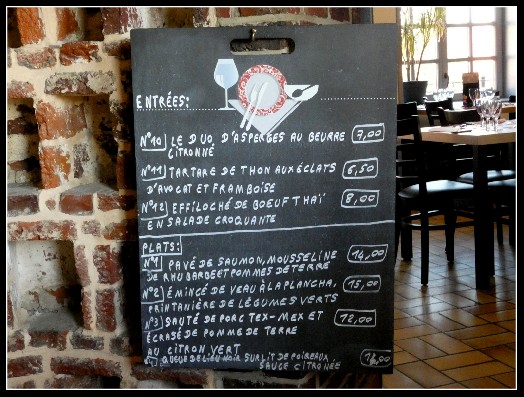 ENTRÉES:
N°10 LE DUO D'ASPERGES AU BEURRE 7,00
CITRONNÉ
N°11 TARTARE DE THON AUX ÉCLATS 6,50
D'AVOCAT ET FRAMBOISE
N°12 EFFILOCHÉ DE BOEUF THAÏ 8,00
EN SALADE CROQUANTE
PLATS:
N°1 PAVÉ DE SAUMON, MOUSSELINE 14,00
DE RHUBARBE ET POMMES DE TERRE
N°2 ÉMINCÉ DE VEAU À LA PLANCHA, 15,00
PRINTANIÈRE DE LÉGUMES VERTS
N°3 SAUTÉ DE PORC TEX-MEX ET 12,00
ÉCRASÉ DE POMME DE TERRE
AU CITRON VERT
QUEUE DE LIEU NOIR SUR LIT DE POIREAUX, 16,00
SAUCE CITRONÉE